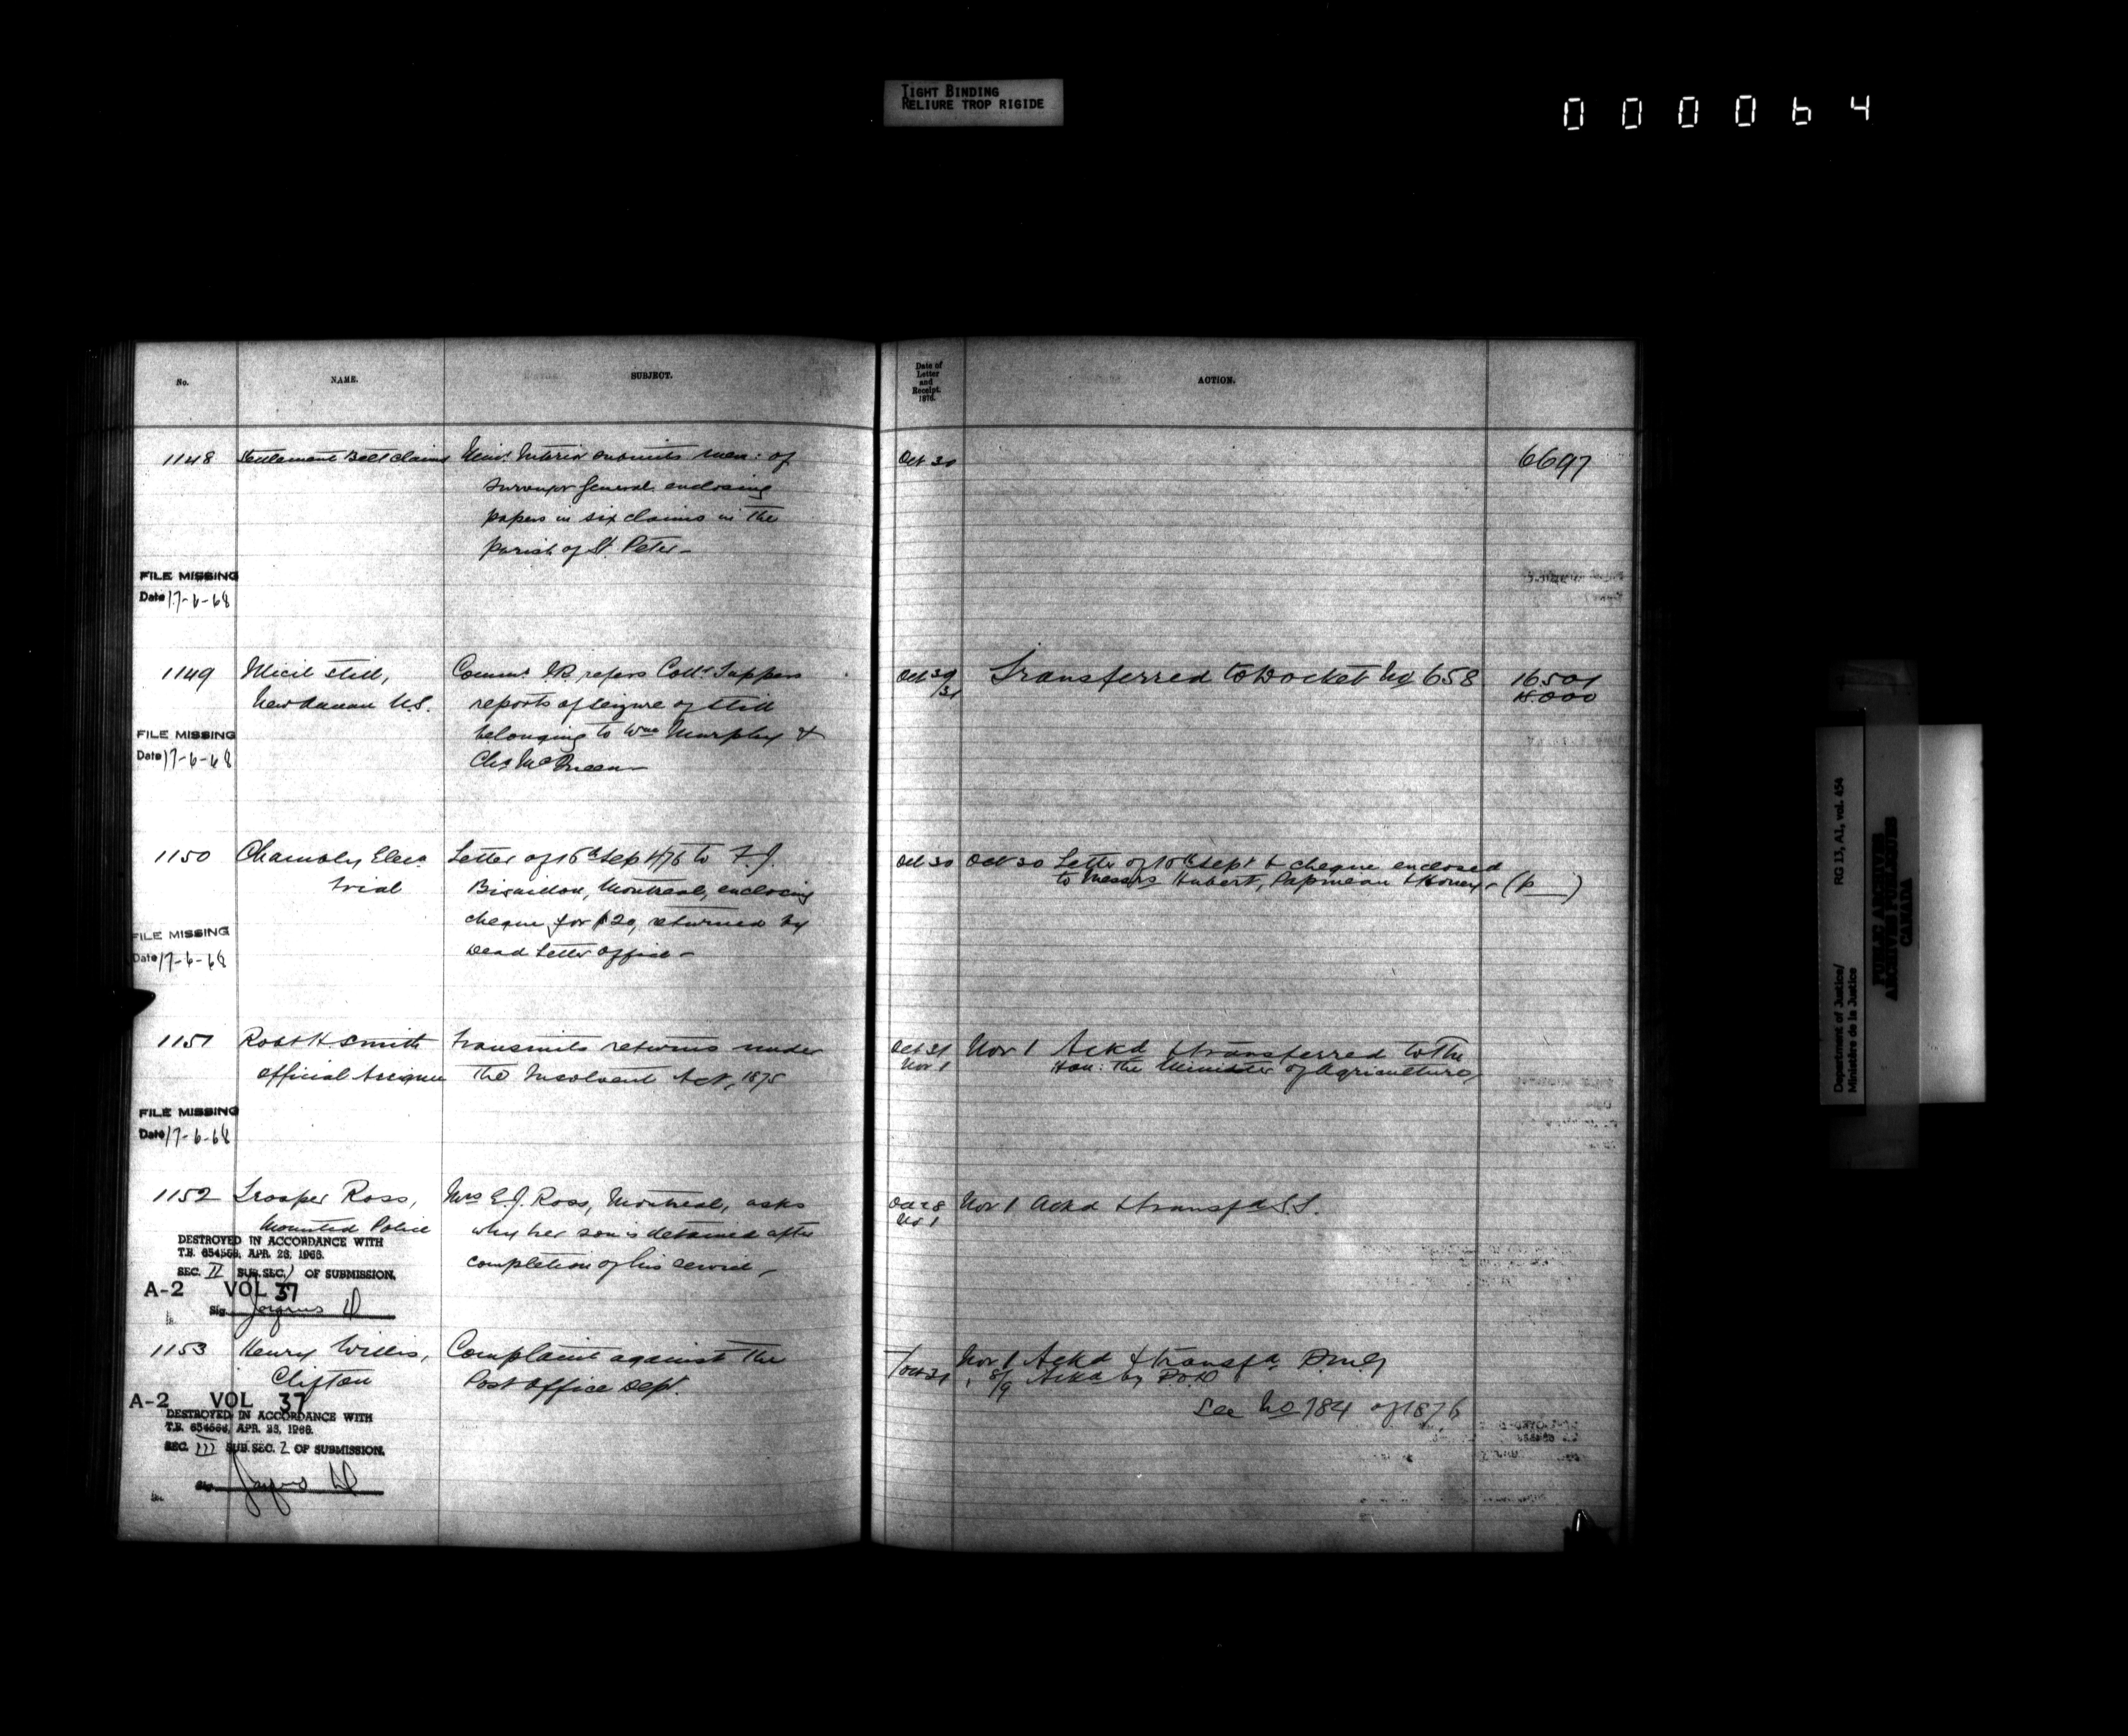 TIGHT BINDING
RELIURE TROP RIGIDE
000064
No.
NAME.
SUBJECT.
Date of
Letter
and
Receipt.
1876.
ACTION.
1148
Settlement Belt Claims
Minr. Interior submits mem: of
Surveyor General enclosing
papers in six claims in the
parish of St. Peter -
Oct 30
6697
FILE MISSING
Date 17-6-68
1149
Illicit Still,
Comms. IR refers Coll. Tuppers
reports of seizure of still
belonging to Wm Murphy &
Chs
Oct 30
/31
Transferred to Docket No 658
16.501
18.000
FILE MISSING
Date 17-6-68
1150
Chambly Elec.
trial
Letter of 16th Sept/76 to F.J.
Bisaillon, Montreal, enclosing
cheque for $20, returned by
Dead Letter Office -
Oct 30
Oct 30 Letter of 16th Sept & cheque enclosed
to Messrs Hubert, Papineau & Honey - (p )
FILE MISSING
Date 17-6-68
1151
Robt H Smith
Official Assignee
Transmits returns under
the Insolvent Act, 1875
Oct 31
Nov 1
Nov 1 Ackd & transferred to the
Hon: the Minister of Agriculture
FILE MISSING
Date 17-6-68
1152
Trooper Ross,
Mounted Police
Mrs E.J. Ross, Montreal, asks
why her son is detained after
completion of his service -
Oct 28
Nov 1
Nov 1 Ackd & transfd S.S.
DESTROYED IN ACCORDANCE WITH
T.B. 654566, APR. 28, 1966.
SEC. II SUB.SEC. 1 OF SUBMISSION.
A-2 VOL 37
Sig.
1153
Henry Willis,
Clifton
Complaint against the
Post Office Dept.
/Oct 31
Nov 1 Ackd & transfd P.M.G
" 8/9 Ackd by P.O.D
See No 784 of 1876
A-2 VOL 37
DESTROYED IN ACCORDANCE WITH
T.B. 654566, APR. 28, 1966.
SEC. III SUB.SEC. 2 OF SUBMISSION.
Department of Justice/
Ministère de la Justice
RG 13, A1, vol. 454
PUBLIC ARCHIVES
ARCHIVES PUBLIQUES
CANADA